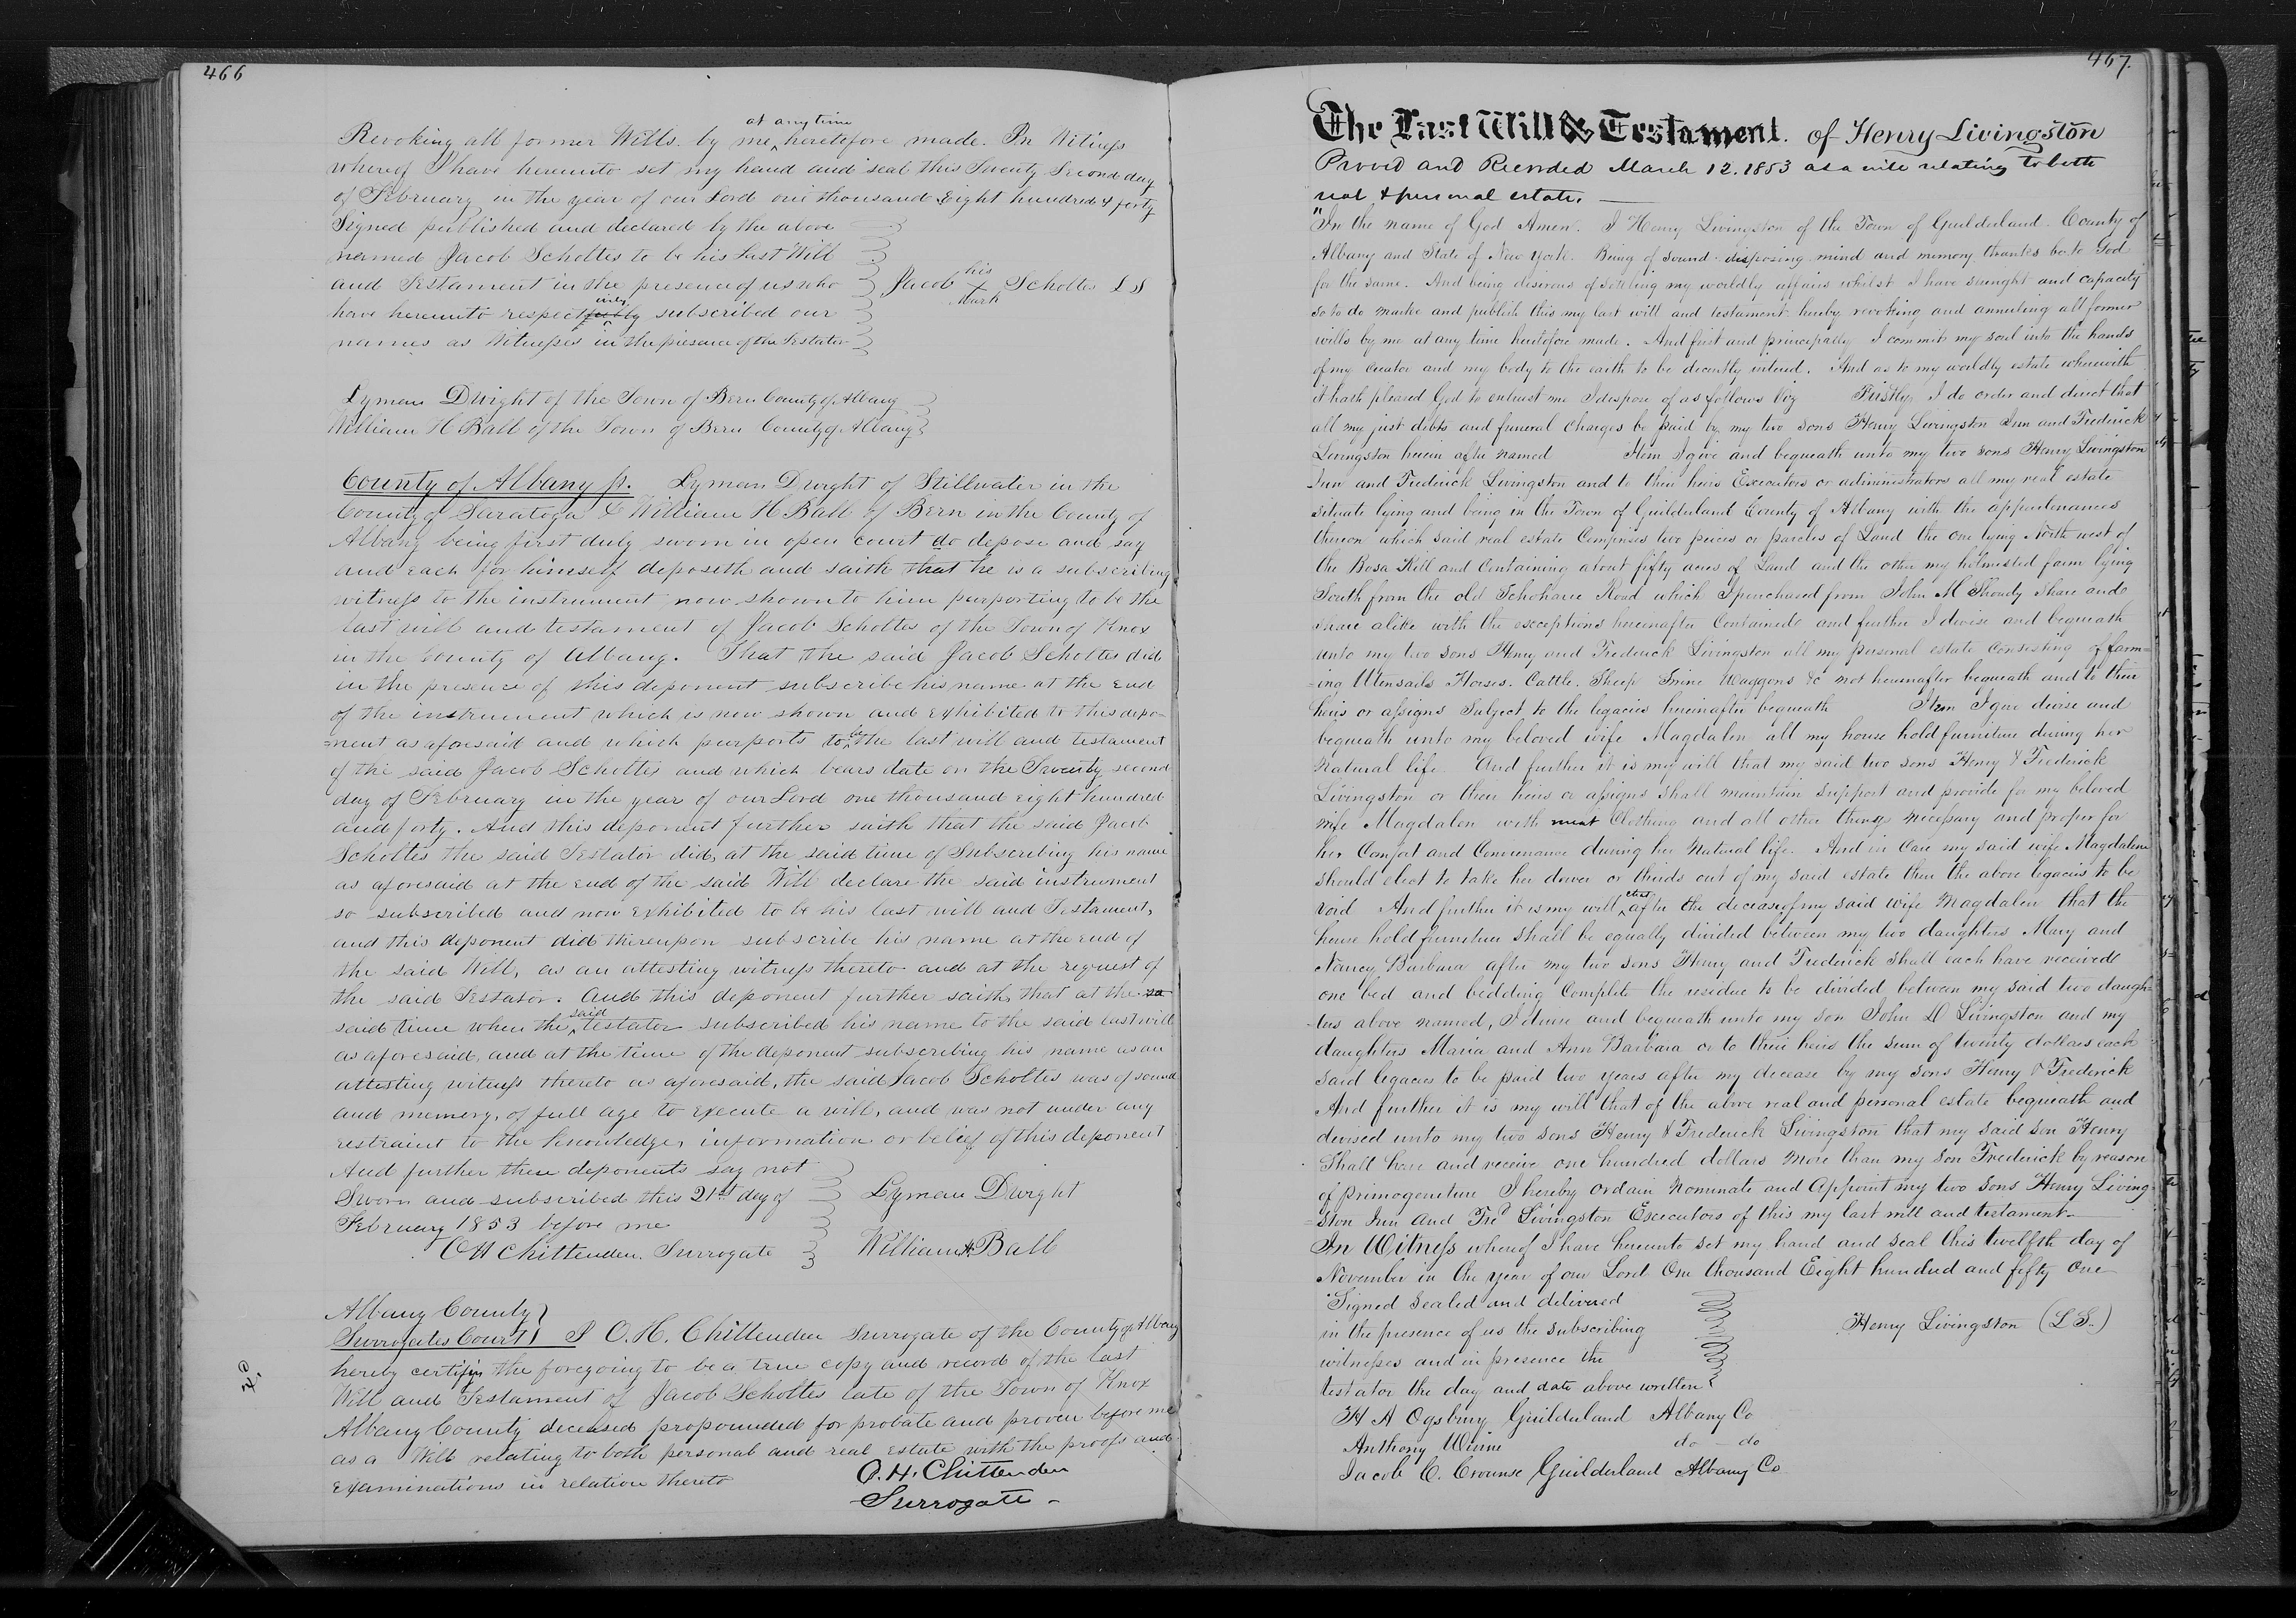 466
at any time
Revoking all former Wills by me heretofore made. In Witness
whereof I have hereunto set my hand and seal this Twenty Second day
of February in the year of our Lord one thousand Eight hundred & forty
Signed published and declared by the above
named Jacob Scholtes to be his Last Will
and Testament in the presence of us who
his
Jacob X Scholtes L S
mark
ively
have hereunto respectfully subscribed our
names as Witnesses in the presence of the Testator
Lyman Dwight of the Town of Bern County of Albany
William H Ball of the Town of Bern County of Albany
County of Albany ss. Lyman Dwight of Stillwater in the
County of Saratoga & William H Ball of Bern in the County of
Albany being first duly sworn in open court do depose and say
and each for himself deposeth and saith that he is a subscribing
witness to the instrument now shown to him purporting to be the
last will and testament of Jacob Scholtes of the Town of Knox
in the County of Albany. That the said Jacob Scholtes did
in the presence of this deponent subscribe his name at the end
of the instrument which is now shown and exhibited to this depo-
=nent as aforesaid and which purports to be the last will and testament
of the said Jacob Scholtes and which bears date on the Twenty second
day of February in the year of our Lord one thousand eight hundred
and forty. And this deponent further saith that the said Jacob
Scholtes the said Testator did, at the said time of Subscribing his name
as aforesaid at the end of the said Will declare the said instrument
so subscribed and now exhibited to be his last will and Testament,
and this deponent did thereupon subscribe his name at the end of
the said Will, as an attesting witness thereto and at the request of
the said Testator. And this deponent further saith, that at the sa
said time when the said testator subscribed his name to the said last will
as aforesaid, and at the time of the deponent subscribing his name as an
attesting witness thereto as aforesaid, the said Jacob Scholtes was of sound
and memory, of full age to execute a will, and was not under any
restraint to the knowledge, information or belief of this deponent
And further these deponents say not
Sworn and subscribed this 21st day of
February 1853 before me
O H Chittenden. Surrogate
Lyman Dwight
William H. Ball
Albany County
Surrogates Court I O. H. Chittenden Surrogate of the County of Albany
hereby certify the foregoing to be a true copy and record of the last
Will and Testament of Jacob Scholtes late of the Town of Knox
Albany County deceased propounded for probate and proven before me
as a Will relating to both personal and real estate with the proofs and
examinations in relation thereto
O. H. Chittenden
Surrogate -
467.
The Last Will & Testament. of Henry Livingston
Proved and Recorded March 12. 1853 as a will relating to both
real & personal estate.
"In the name of God Amen. I Henry Livingston of the Town of Guilderland County of
Albany and State of New York. Being of sound disposing mind and memory thanks be to God
for the same. And being desirous of settling my worldly affairs whilst I have strenght and capacity
so to do make and publish this my last will and testament hereby revoking and annuling all former
wills by me at any time heretofore made. And first and principally I commit my soul into the hands
of my creator and my body to the earth to be decently intered. And as to my worldly estate wherewith
it hath pleased God to entrust me I dispose of as follows viz Firstly, I do order and direct that
all my just debts and funeral charges be paid by my two sons Henry Livingston Jun and Frederick
Livingston herein after named Item I give and bequeath unto my two sons Henry Livingston
Jun and Frederick Livingston and to their heirs Executors or administrators all my real estate
situate lying and being in the Town of Guilderland County of Albany with the appurtenances
thereon which said real estate Comprises two peices or parcles of Land the one lying North west of
the Bosa Kill and Containing about fifty acres of Land and the other my homested farm lying
South from the old Schoharie Road which I purchased from John M Shoudy Share and
share alike with the exceptions hereinafter Contained and further I devise and bequeath
unto my two sons Henry and Frederick Livingston all my personal estate Consisting of farm=
=ing Utensails Horses. Cattle. Sheep Swine Waggons &c not hereinafter bequeath and to their
heirs or assigns Subject to the legacies hereinafter bequeath Item I give devise and
bequeath unto my beloved wife Magdalen all my house hold furniture during her
natural life And further it is my will that my said two sons Henry & Frederick
Livingston or their heirs or assigns shall maintain support and provide for my beloved
wife Magdalen with meat Clothing and all other things necessary and proper for
her Comfort and Convenance during her natural life. And in Case my said wife Magdalene
should elect to take her dower or thirds out of my said estate then the above legacies to be
that
void And further it is my will after the decease of my said wife Magdalen that the
house hold furniture shall be equally divided between my two daughters Mary and
Nancy Barbara after my two sons Henry and Frederick shall each have received
one bed and bedding Complete the residue to be divided between my said two daugh=
-ters above named, I devise and bequeath unto my son John D Livingston and my
daughters Maria and Ann Barbara or to their heirs the sum of twenty dollars each
said legacies to be paid two years after my decease by my sons Henry & Frederick
And further it is my will that of the above real and personal estate bequeath and
devised unto my two sons Henry & Frederick Livingston that my said son Henry
Shall have and receive one hundred dollars more than my son Frederick by reason
of primogeneture I hereby ordain nominate and appoint my two sons Henry Living-
=ston Jun and Fred Livingston Executors of this my last will and testament.
In Witness whereof I have hereunto set my hand and seal this twelfth day of
November in the year of our Lord One thousand Eight hundred and fifty One
Signed sealed and delivered
in the presence of us the subscribing
witnesses and in presence the
testator the day and date above written
Henry Livingston (L S.)
H A Ogsbury Guilderland Albany Co
Anthony do - do
Jacob C. Crounse Guilderland Albany Co